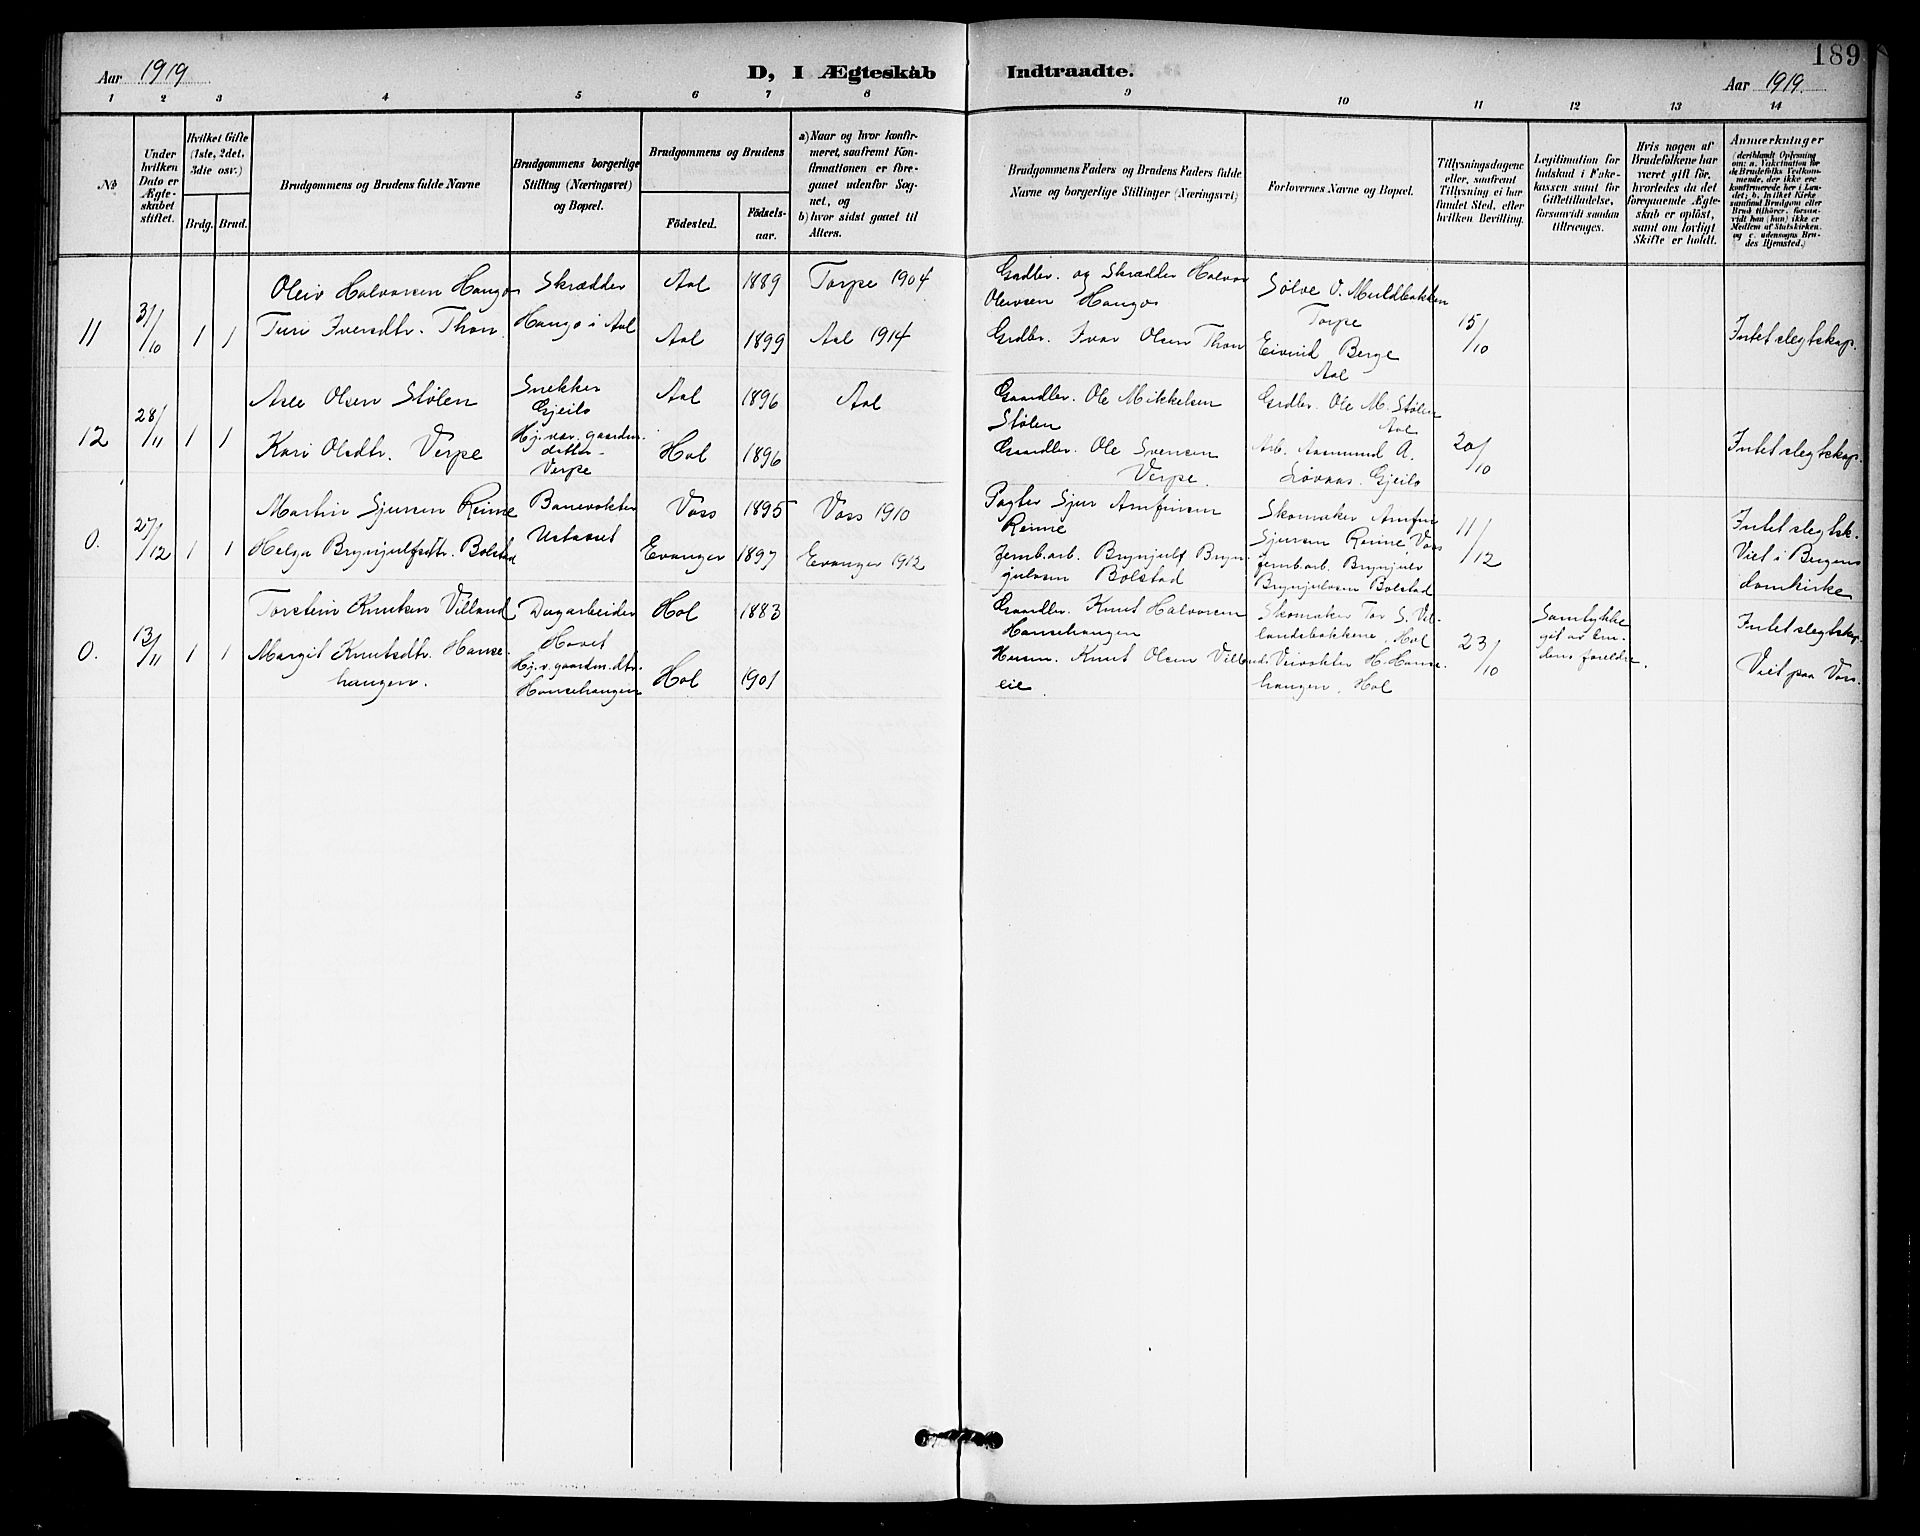 189
Aar 1919
D, I Ægteskab Indtraadte.
Aar 1919.
1 2 3 4 5 6 7 8 9 10 11 12 13 14
№
Under hvilken Dato er Ægteskabet stiftet.
Hvilket Gifte (1ste, 2det, 3die osv.)
Brdg. Brud.
Brudgommens og Brudens fulde Navne
Brudgommens borgerlige Stilling (Næringsvei) og Bopæl.
Brudgommens og Brudens
Födested.
Födselsaar.
a) Naar og hvor konfirmeret, saafremt Konfirmationen er foregaaet udenfor Sognet, og
b) hvor sidst gaaet til Alters.
Brudgommens Faders og Brudens Faders fulde Navne og borgerlige Stillinger (Næringsvei)
Forlovernes Navne og Bopæl.
Tillysningsdagene eller, saafremt Tillysning ei har fundet Sted, efter hvilken Bevilling.
Legitimation for Indskud i Enkekassen samt for Giftetilladelse, forsaavidt saadan tiltrænges.
Hvis nogen af Brudefolkene har været gift før, hvorledes da det foregaaende Ægteskab er opløst, samt om lovligt Skifte er holdt.
Anmærkninger
(deriblandt Oplysning om: a. Vakcination for de Brudefolks Vedkommende, der ikke ere konfirmerede her i Landet; b. hvilket Kirkesamfund Brudgom eller Brud tilhører, forsaavidt han (hun) ikke er Medlem af Statskirken, og c. udensogns Brudes Hjemsted.)
11
31/10
1 1
Oleiv Halvorsen Haugo
Turi Iversdtr. Thon
Skrædder
Haugo i Aal
Aal 1889 Torpe 1904
Aal 1899 Aal 1914
Grdbr. og Skrædder Halvor
Oleivsen Haugo
Grdbr. Ivar Olsen Thon
Sølve O. Muldbakken
Torpe
Eivind Berge
Aal
15/10
Intet slegtskap.
12
28/11
1 1
Asle Olsen Stølen
Kari Olsdtr. Verpe
Snekker
Gjeilo
Hj. vær. gaardm.
datter
Verpe
Aal 1896 Aal
Hol 1896
Gaardbr. Ole Mikkelsen
Stølen
Gaardbr. Ole Svensen
Verpe.
Grdbr. Ole M. Stølen
Aal
Arb. Aasmund A.
Løvaas. Gjeilo
20/10
Intet slegtskap.
0.
27/12
1 1
Martin Sjursen Reime
Helga Brynjulfsdtr. Bolstad
Banevokter
Ustaoset
Voss 1895 Voss 1910
Evanger 1897 Evanger 1912
Sjur Amfinsen
Reime
Jernb.arb. Brynjulf Bryn-
julvsen Bolstad
Skomaker Amfin
Sjursen Reime, Voss
Jernb.arb. Brynjulv
Brynjulvsen Bolstad
11/12
Intet slegtsk.
Viet i Bergens
domkirke
0.
13/11
1 1
Torstein Knutsen Villand
Margit Knutsdtr. Hanse-
haugen.
Dagarbeider
Hovet
Hj. v. gaardm. dtr.
Hansehaugen
Hol 1883
Hol 1901
Gaardbr. Knut Halvorsen
Hansehaugen
Husm. Knut Olsen Villands-
eie.
Skomaker Tor S. Vil-
landsbakkene, Hol
Veivokter H. Hanse-
haugen, Hol
23/10
Samtykke
git av bru-
dens foreldre.
Intet slegtskap
Viet paa Voss.